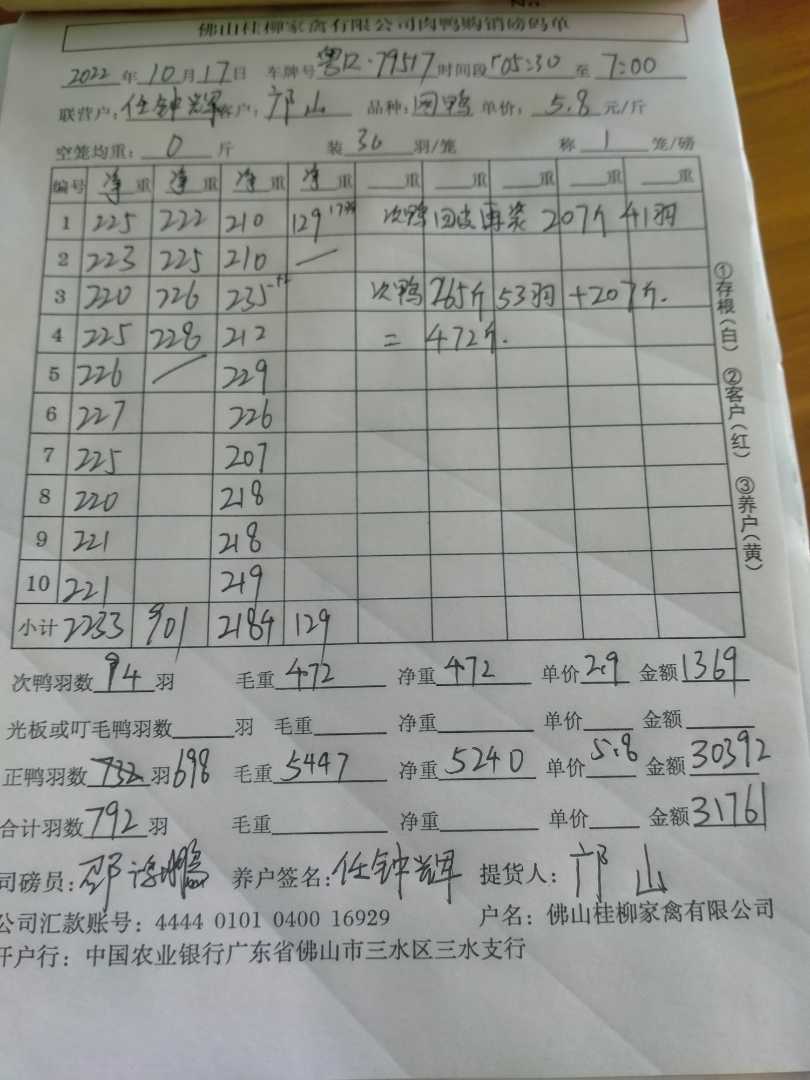 佛山桂柳家禽有限公司肉鸭购销磅码单
2022年10月17日 车牌号 粤R·79517 时间段 05:30 至 7:00
联营户：任钟辉 客户：邝山 品种： 单价：5.8元/斤
空笼均重：0斤 装 36 羽/笼 称 1 笼/磅
编号 净重 净重 净重 净重 重 重 重 重 重
1 225 222 210 129 17羽 次鸭回皮再装 207斤 41羽
2 223 225 210 —
3 220 226 235 次鸭 265斤 53羽 +207斤.
4 225 228 212 = 472斤.
5 226 — 229
6 227 226
7 225 207
8 220 218
9 221 218
10 221 219
小计 2233 901 2184 129
次鸭羽数 94 羽 毛重 472 净重 472 单价 2.9 金额 1369
光板或叮毛鸭羽数 羽 毛重 净重 单价 金额
正鸭羽数 732 羽 698 毛重 5447 净重 5240 单价 5.8 金额 30392
合计羽数 792 羽 毛重 净重 单价 金额 31761
司磅员： 养户签名：任钟辉 提货人：邝山
公司汇款账号：4444 0101 0400 16929 户名：佛山桂柳家禽有限公司
开户行：中国农业银行广东省佛山市三水区三水支行
①存根（白） ②客户（红） ③养户（黄）